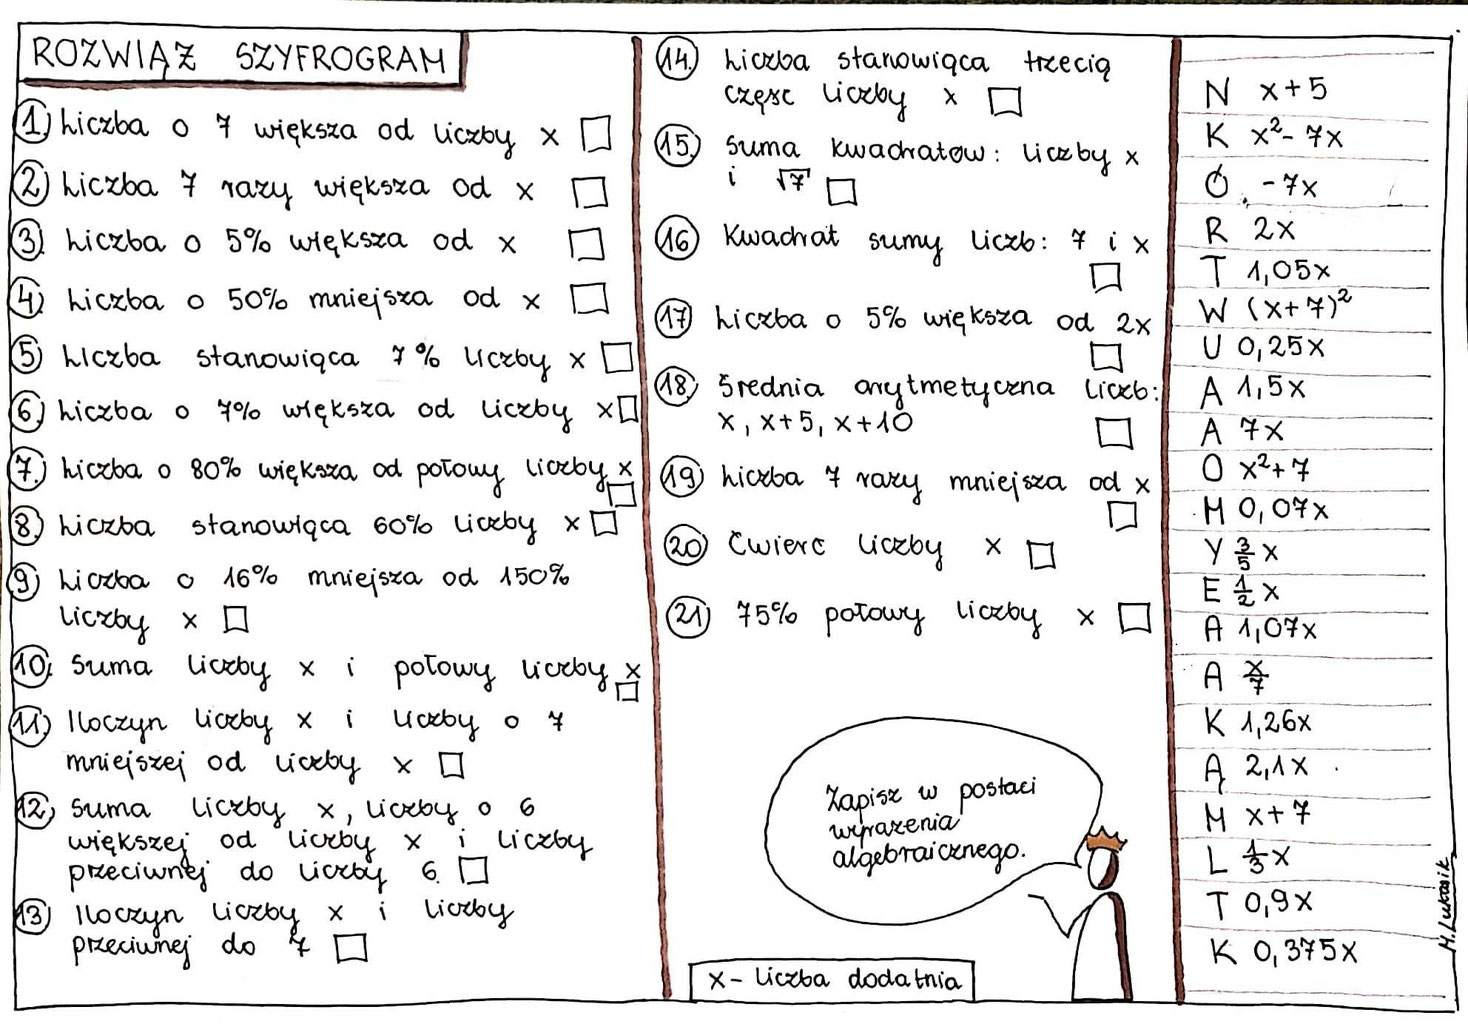 ROZWIĄŻ SZYFROGRAM
1) Liczba o 7 większa od liczby x
2) Liczba 7 razy większa od x
3) Liczba o 5% większa od x
4) Liczba o 50% mniejsza od x
5) Liczba stanowiąca 7% liczby x
6) Liczba o 7% większa od liczby x
7) Liczba o 80% większa od połowy liczby x
8) Liczba stanowiąca 60% liczby x
9) Liczba o 16% mniejsza od 150%
liczby x
10) Suma liczby x i połowy liczby x
11) Iloczyn liczby x i liczby o 7
mniejszej od liczby x
12) Suma liczby x, liczby o 6
większej od liczby x i liczby
przeciwnej do liczby 6.
13) Iloczyn liczby x i liczby
przeciwnej do 7
14) Liczba stanowiąca trzecią
część liczby x
15) Suma kwadratów: liczby x
i √7
16) Kwadrat sumy liczb: 7 i x
17) Liczba o 5% większa od 2x
18) Średnia arytmetyczna liczb:
x, x+5, x+10
19) Liczba 7 razy mniejsza od x
20) Ćwierć liczby x
21) 75% połowy liczby x
Zapisz w postaci
wyrażenia
algebraicznego.
x - liczba dodatnia
N x+5
K x²- 7x
Ó -7x
R 2x
T 1,05x
W (x+7)²
U 0,25x
A 1,5x
A 7x
O x²+7
M 0,07x
Y 3/5 x
E 1/2 x
A 1,07x
A x/7
K 1,26x
Ą 2,1x
M x+7
L 1/3 x
T 0,9x
K 0,375x
M.Lukasik